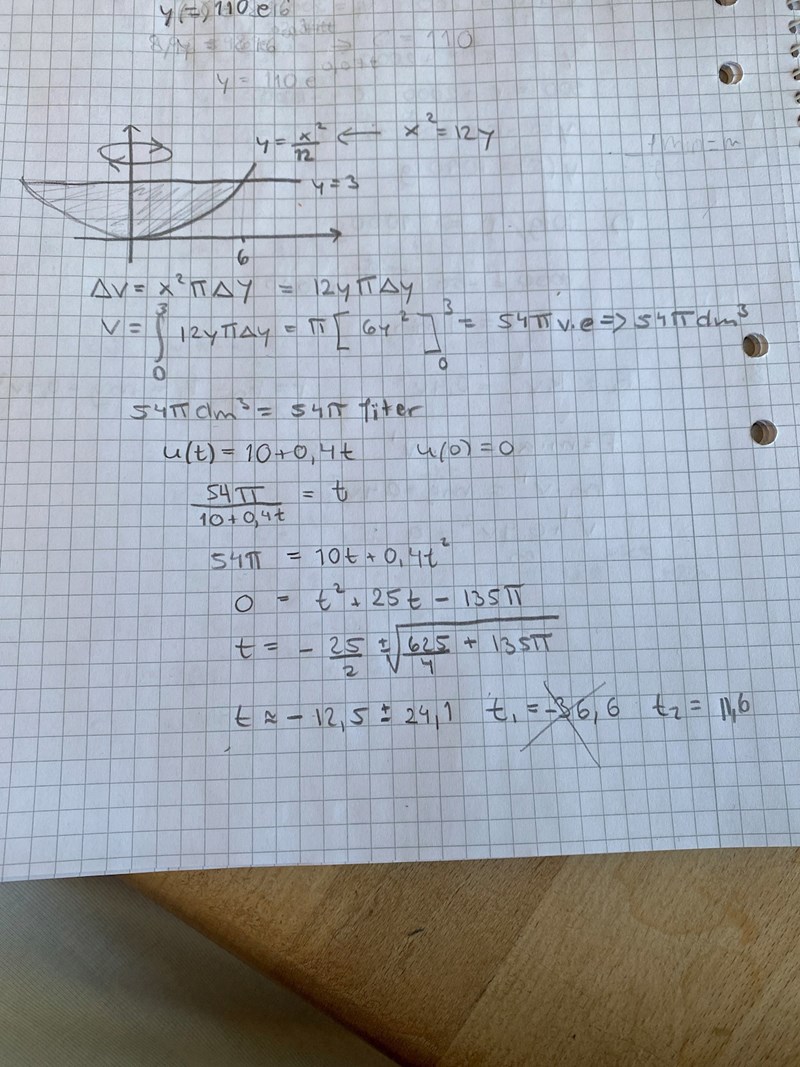 y(=) 110 e
= 110
y = 110 e
y = x²/12 ← x² = 12y
y = 3
6
ΔV = x²πΔy = 12yπΔy
V = ∫₀³ 12yπΔy = π[6y²]₀³ = 54π v.e => 54π dm³
54π dm³ = 54π liter
u(t) = 10+0,4t u(0) = 0
54π/(10+0,4t) = t
54π = 10t + 0,4t²
0 = t² + 25t - 135π
t = - 25/2 ± √(625/4 + 135π)
t ≈ -12,5 ± 24,1 t₁ = -36,6 t₂ = 11,6